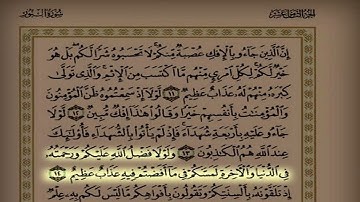 الجزء الثامن عشر
سورة النور
إِنَّ الَّذِينَ جَاءُو بِالْإِفْكِ عُصْبَةٌ مِنكُمْ لَا تَحْسَبُوهُ شَرًّا لَكُم بَلْ هُوَ
خَيْرٌ لَكُمْ لِكُلِّ امْرِئٍ مِنْهُم مَا اكْتَسَبَ مِنَ الْإِثْمِ وَالَّذِي تَوَلَّى
كِبْرَهُ مِنْهُمْ لَهُ عَذَابٌ عَظِيمٌ ١١ لَوْلَا إِذْ سَمِعْتُمُوهُ ظَنَّ الْمُؤْمِنُونَ
وَالْمُؤْمِنَاتُ بِأَنفُسِهِمْ خَيْرًا وَقَالُوا هَذَا إِفْكٌ مُبِينٌ ١٢ لَوْلَا
جَاءُو عَلَيْهِ بِأَرْبَعَةِ شُهَدَاءَ فَإِذْ لَمْ يَأْتُوا بِالشُّهَدَاءِ فَأُولَئِكَ
عِندَ اللَّهِ هُمُ الْكَاذِبُونَ ١٣ وَلَوْلَا فَضْلُ اللَّهِ عَلَيْكُمْ وَرَحْمَتُهُ
فِي الدُّنْيَا وَالْآخِرَةِ لَمَسَّكُمْ فِي مَا أَفَضْتُمْ فِيهِ عَذَابٌ عَظِيمٌ ١٤
إِذْ تَلَقَّوْنَهُ بِأَلْسِنَتِكُمْ وَتَقُولُونَ بِأَفْوَاهِكُم مَا لَيْسَ لَكُم بِهِ عِلْمٌ